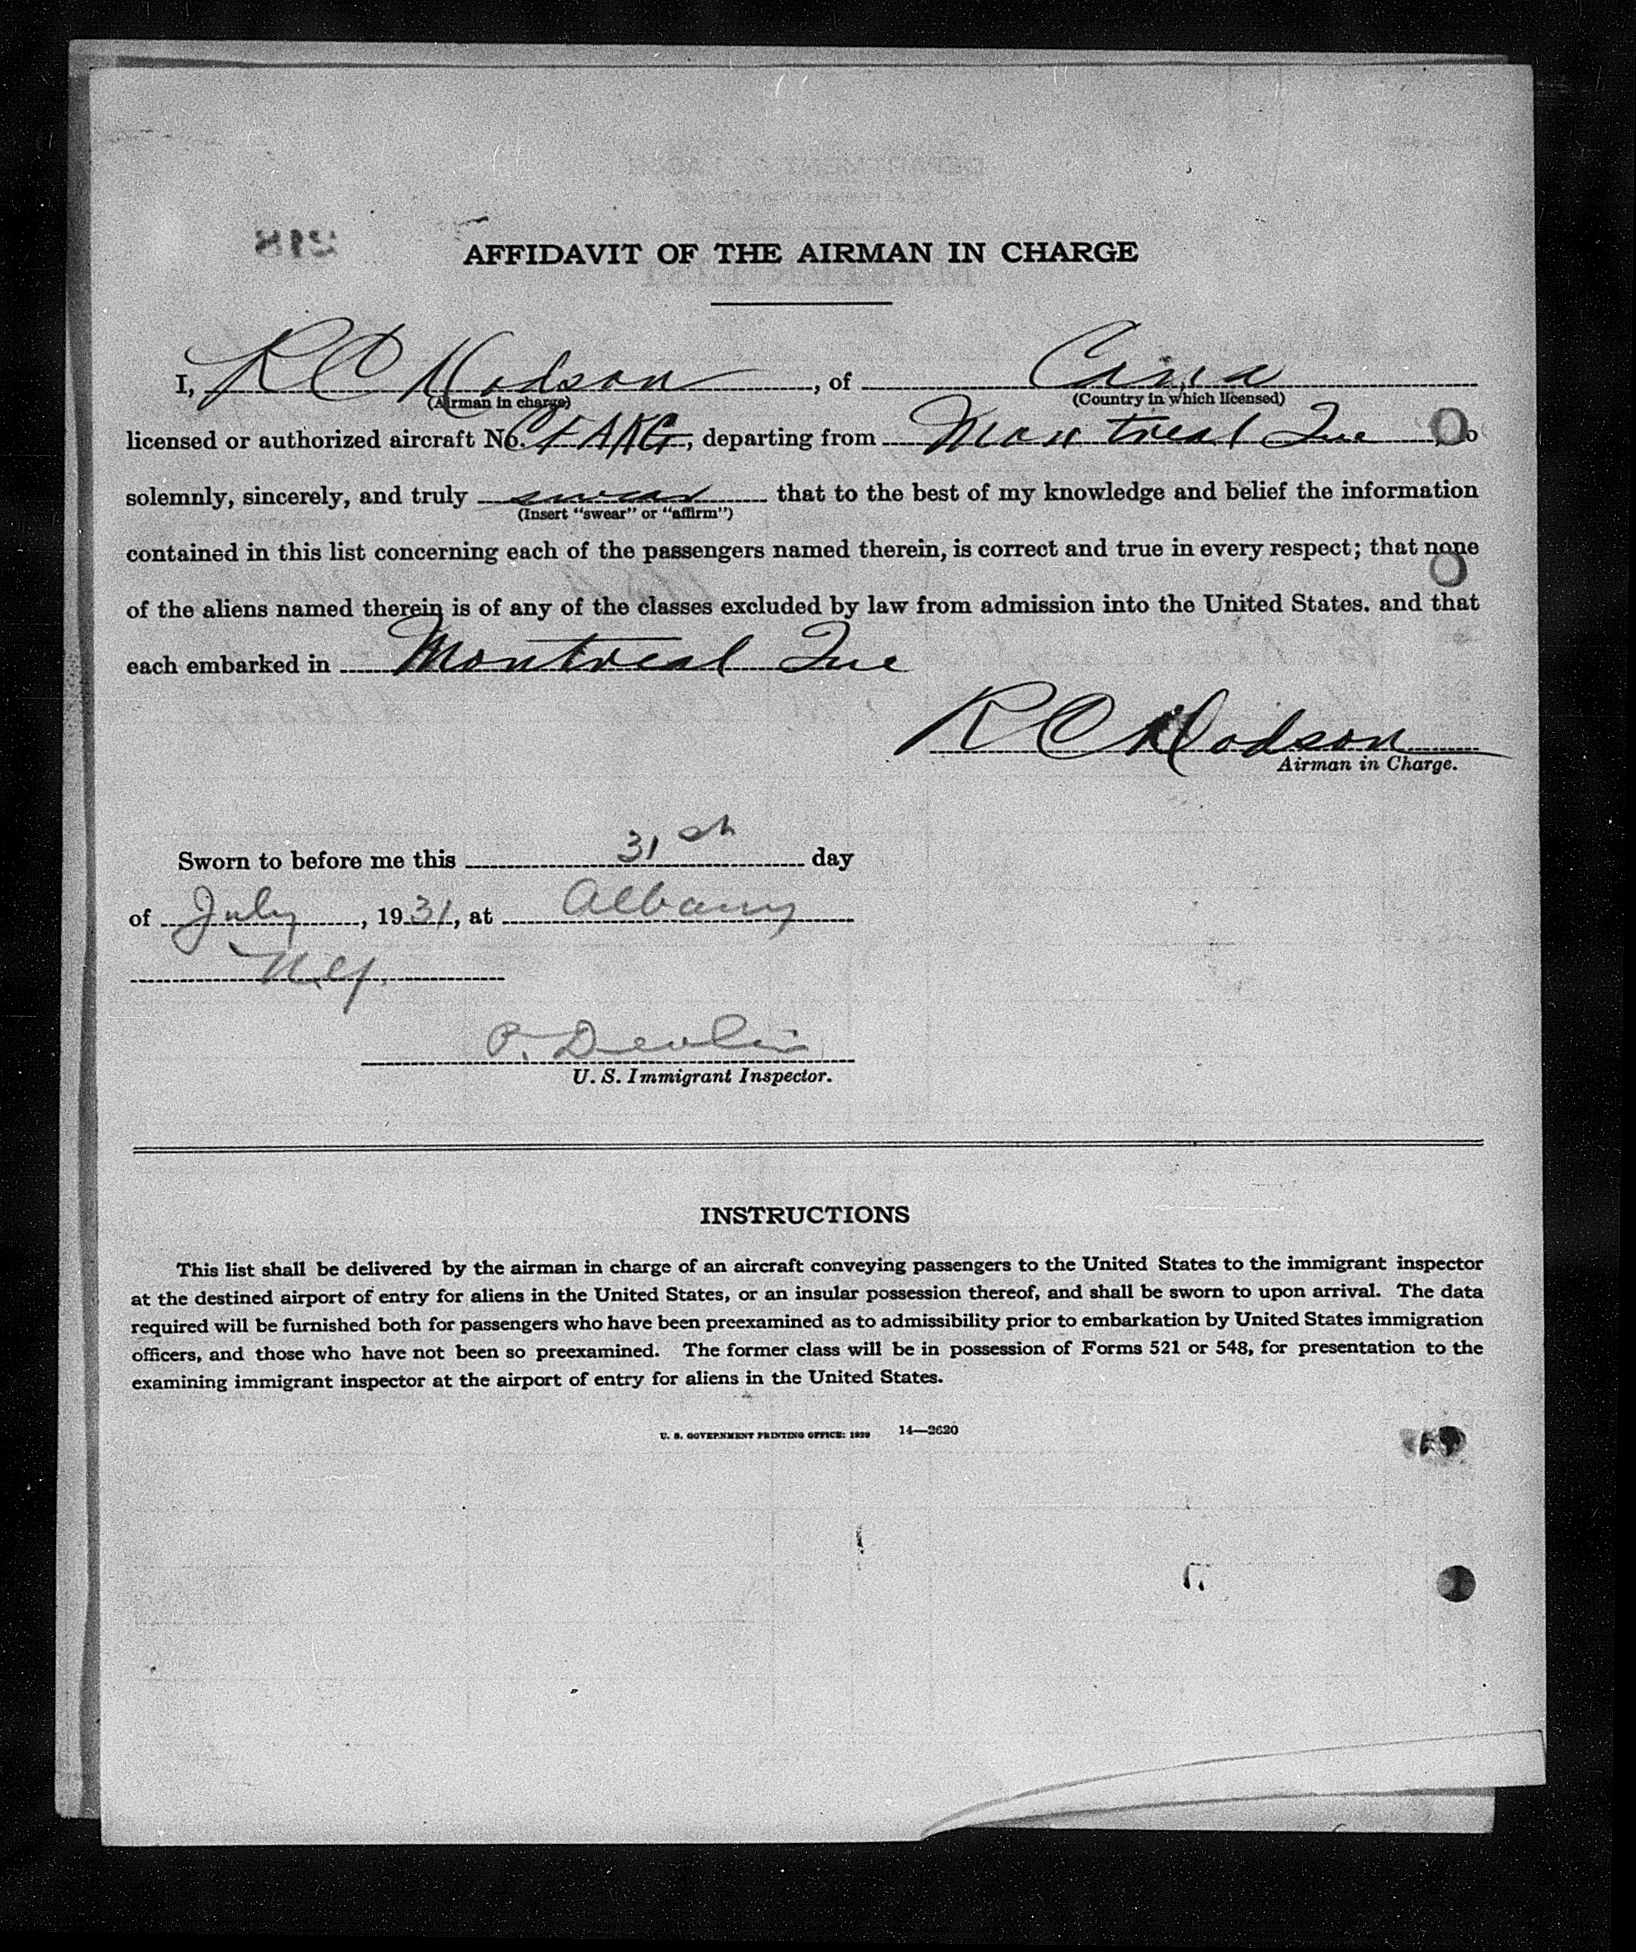 AFFIDAVIT OF THE AIRMAN IN CHARGE
I, R C Hodson, of Cana
(Airman in charge) (Country in which licensed)
licensed or authorized aircraft No. CFAKG, departing from Montreal Que, do
solemnly, sincerely, and truly swear that to the best of my knowledge and belief the information
(Insert "swear" or "affirm")
contained in this list concerning each of the passengers named therein, is correct and true in every respect; that none
of the aliens named therein is of any of the classes excluded by law from admission into the United States. and that
each embarked in Montreal Que
R C Hodson
Airman in Charge.
Sworn to before me this 31st day
of July, 1931, at Albany
N.Y.
P. Devlin
U. S. Immigrant Inspector.
INSTRUCTIONS
This list shall be delivered by the airman in charge of an aircraft conveying passengers to the United States to the immigrant inspector
at the destined airport of entry for aliens in the United States, or an insular possession thereof, and shall be sworn to upon arrival. The data
required will be furnished both for passengers who have been preexamined as to admissibility prior to embarkation by United States immigration
officers, and those who have not been so preexamined. The former class will be in possession of Forms 521 or 548, for presentation to the
examining immigrant inspector at the airport of entry for aliens in the United States.
U. S. GOVERNMENT PRINTING OFFICE: 1929 14—2620